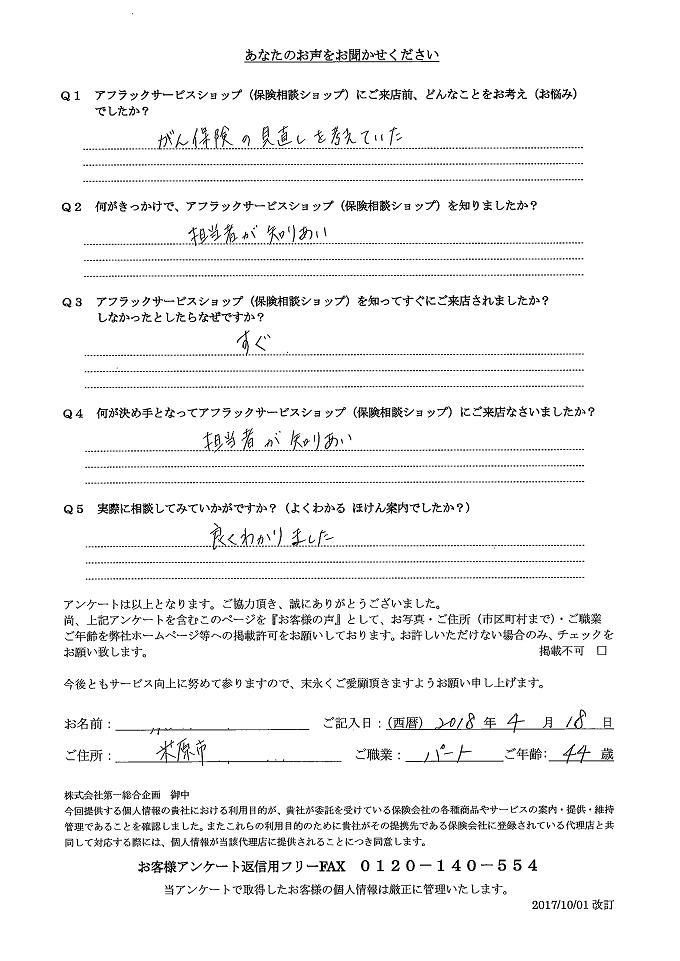 あなたのお声をお聞かせください
Q1 アフラックサービスショップ(保険相談ショップ)にご来店前、どんなことをお考え(お悩み)
でしたか?
がん保険の見直しを考えていた
Q2 何がきっかけで、アフラックサービスショップ(保険相談ショップ)を知りましたか?
担当者が知りあい
Q3 アフラックサービスショップ(保険相談ショップ)を知ってすぐにご来店されましたか?
しなかったとしたらなぜですか?
すぐ
Q4 何が決め手となってアフラックサービスショップ(保険相談ショップ)にご来店なさいましたか?
担当者が知りあい
Q5 実際に相談してみていかがですか?(よくわかる ほけん案内でしたか?)
良くわかりました
アンケートは以上となります。ご協力頂き、誠にありがとうございました。
尚、上記アンケートを含むこのページを『お客様の声』として、お写真・ご住所(市区町村まで)・ご職業
ご年齢を弊社ホームページ等への掲載許可をお願いしております。お許しいただけない場合のみ、チェックを
お願い致します。 掲載不可 □
今後ともサービス向上に努めて参りますので、末永くご愛顧頂きますようお願い申し上げます。
お名前: ご記入日:(西暦) 2018 年 4 月 18 日
ご住所: 米原市 ご職業: パート ご年齢: 44 歳
株式会社第一総合企画 御中
今回提供する個人情報の貴社における利用目的が、貴社が委託を受けている保険会社の各種商品やサービスの案内・提供・維持
管理であることを確認しました。またこれらの利用目的のために貴社がその提携先である保険会社に登録されている代理店と共
同して対応する際には、個人情報が当該代理店に提供されることにつき同意します。
お客様アンケート返信用フリーFAX 0120-140-554
当アンケートで取得したお客様の個人情報は厳正に管理いたします。
2017/10/01 改訂